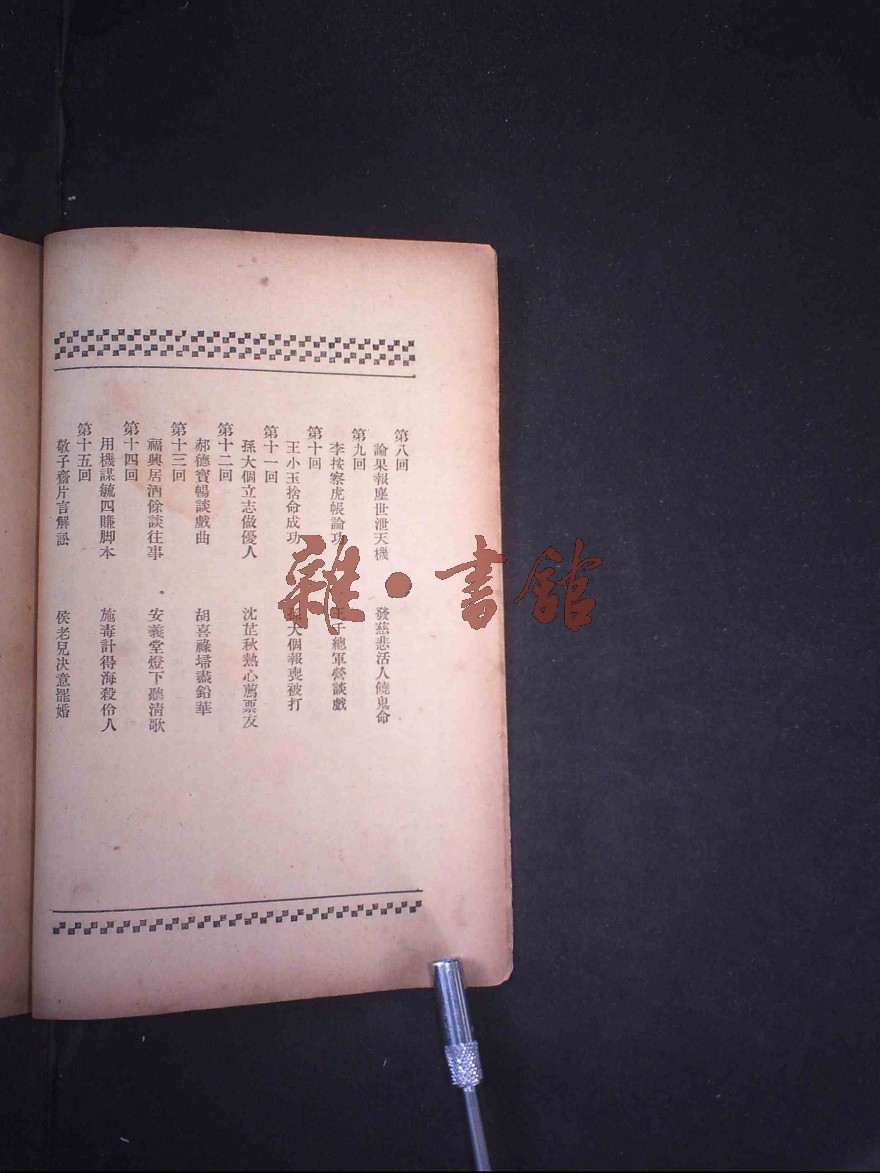 第八回
論果報塵世泄天機　發慈悲活人饒鬼命
第九回
李按察虎帳論功　王子總軍營談戲
第十回
王小玉捨命成功　孫大個報喪被打
第十一回
孫大個立志做優人　沈芷秋熱心薦票友
第十二回
郝德寶暢談戲曲　胡喜祿埽盡鉛華
第十三回
福興居酒餘談往事　安義堂燈下聽清歌
第十四回
用機謀毓四賺脚本　施毒計得海殺伶人
第十五回
敬子齋片言解訟　侯老兒決意罷婚
雜·書館